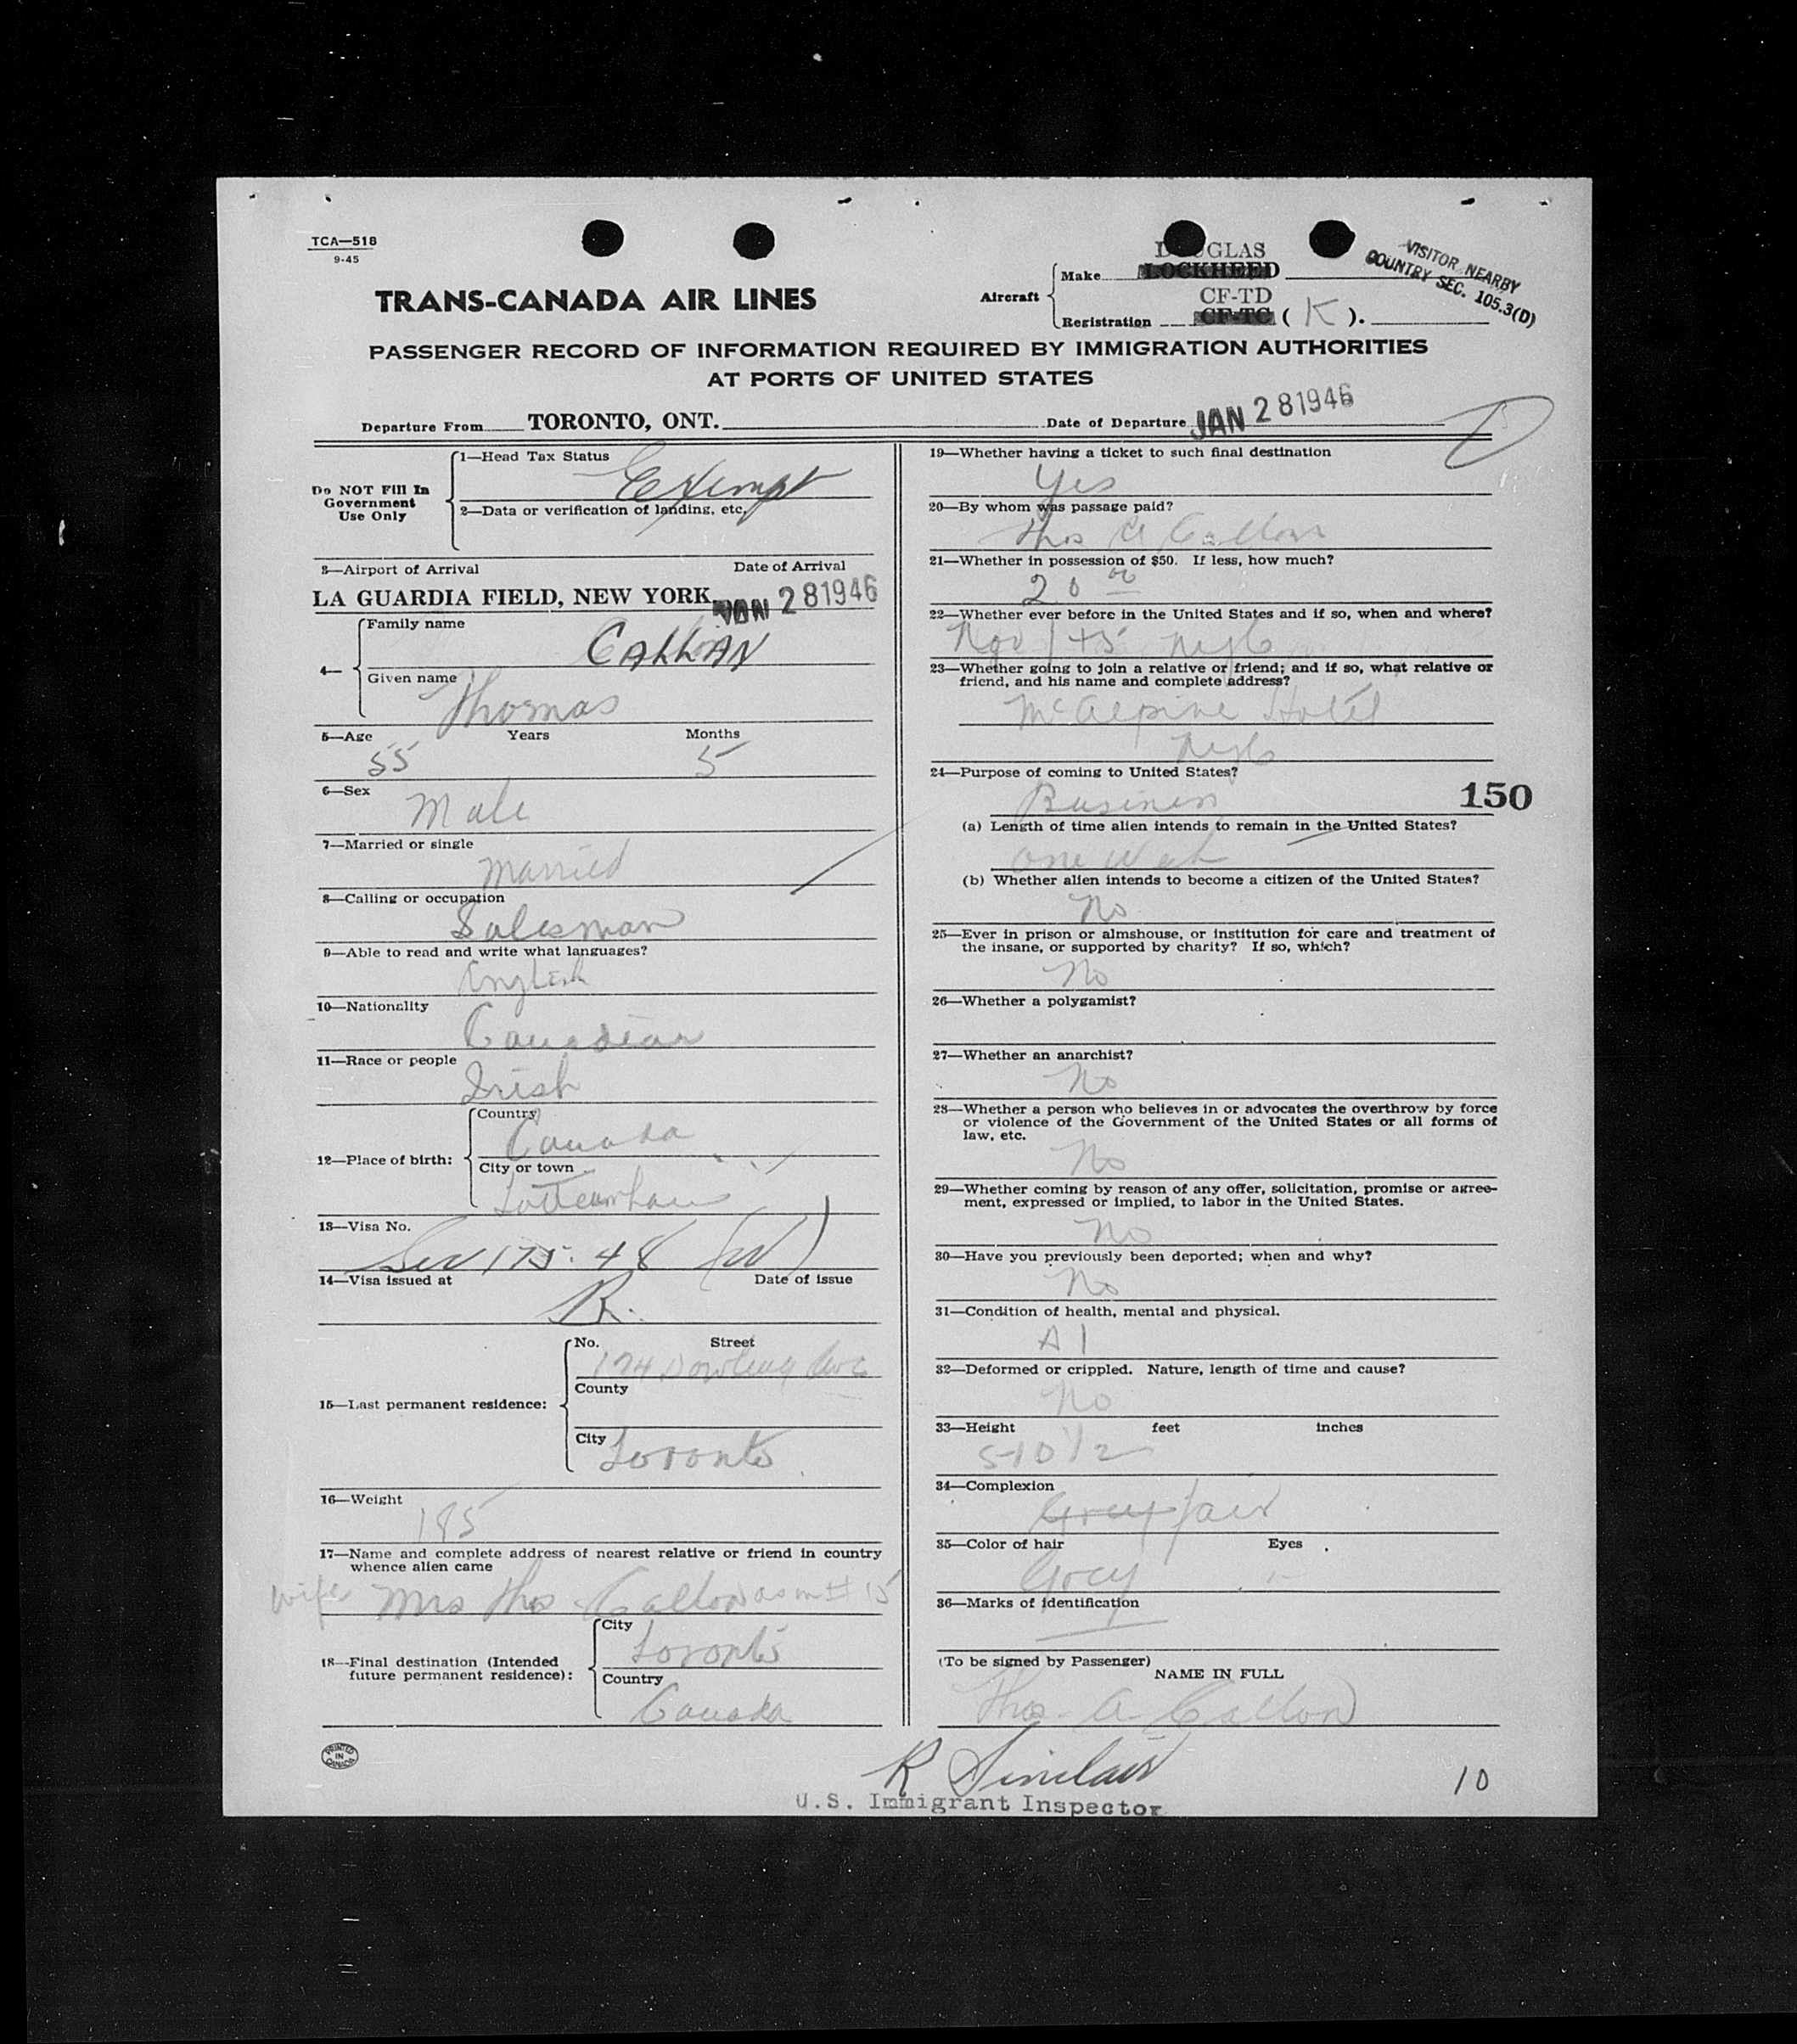 TCA—518
9-45
DOUGLAS
Make LOCKHEED
Aircraft
CF-TD
Registration CF-TC ( K ).
VISITOR NEARBY
COUNTRY SEC. 105.3(D)
TRANS-CANADA AIR LINES
PASSENGER RECORD OF INFORMATION REQUIRED BY IMMIGRATION AUTHORITIES
AT PORTS OF UNITED STATES
Departure From TORONTO, ONT. Date of Departure JAN 28 1946
Do NOT Fill In
Government
Use Only
1—Head Tax Status
Exempt
2—Data or verification of landing, etc.
3—Airport of Arrival Date of Arrival
LA GUARDIA FIELD, NEW YORK JAN 28 1946
4—
Family name
CALLAN
Given name
Thomas
5—Age Years Months
55 5
6—Sex
Male
7—Married or single
Married
8—Calling or occupation
Salesman
9—Able to read and write what languages?
English
10—Nationality
Canadian
11—Race or people
Irish
12—Place of birth:
Country
Canada
City or town
Tottenham
13—Visa No.
Sec 175.48 (W)
14—Visa issued at Date of issue
R.
15—Last permanent residence:
No. Street
174 Dowling Ave
County
City
Toronto
16—Weight
185
17—Name and complete address of nearest relative or friend in country
whence alien came
wife Mrs Thos Callon as in # 15
18—Final destination (Intended
future permanent residence):
City
Toronto
Country
Canada
PRINTED
IN
CANADA
19—Whether having a ticket to such final destination
Yes
20—By whom was passage paid?
Thos A Callon
21—Whether in possession of $50. If less, how much?
20 00
22—Whether ever before in the United States and if so, when and where?
Nov 1 45
23—Whether going to join a relative or friend; and if so, what relative or
friend, and his name and complete address?
McAlpine Hotel
24—Purpose of coming to United States?
Business
150
(a) Length of time alien intends to remain in the United States?
one week
(b) Whether alien intends to become a citizen of the United States?
No
25—Ever in prison or almshouse, or institution for care and treatment of
the insane, or supported by charity? If so, which?
No
26—Whether a polygamist?
27—Whether an anarchist?
No
28—Whether a person who believes in or advocates the overthrow by force
or violence of the Government of the United States or all forms of
law, etc.
No
29—Whether coming by reason of any offer, solicitation, promise or agree-
ment, expressed or implied, to labor in the United States.
No
30—Have you previously been deported; when and why?
No
31—Condition of health, mental and physical.
A1
32—Deformed or crippled. Nature, length of time and cause?
No
33—Height feet inches
5-10 1/2
34—Complexion
Grey fair
35—Color of hair Eyes
Grey
36—Marks of identification
(To be signed by Passenger)
NAME IN FULL
Thos. A. Callon
R Sinclair
U.S. Immigrant Inspector
10